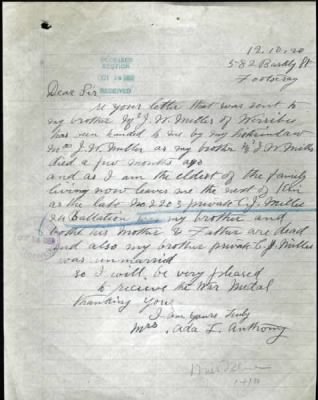 RECORDS
SECTION
RECEIVED
12.10.20
582 Barkly St
Footscray
Dear Sir
re your letter that was sent to
my brother Mr J. W. Miller of Werribee
has been handed to me by my
Mrs J. W. Miller as my brother Mr J W Miller
died a few months ago
and as I am the eldest of the family
living now leaves me the next of Kin
as the late No 2203 private C. J. Miller
24 Battalion was my brother and
both his Mother & Father are dead
and also my brother private C. J. Miller
was unmarried
so I will be very pleased
to recieve the War Medal
thanking you
I am yours truly
Mrs Ada I. Anthony